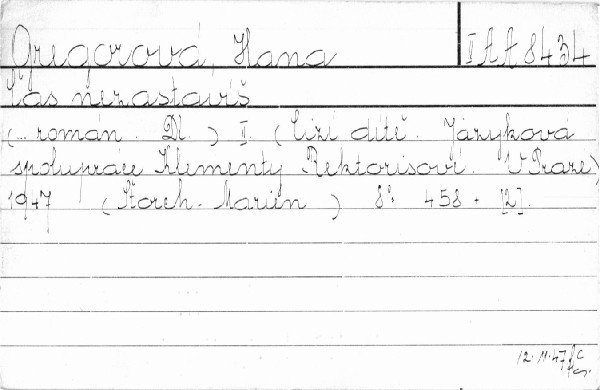 Gregorová, Hana
I A A 8434
Čas nezastavíš
(... román. Díl.) I. (Cizí dítě. Jazyková
spolupráce Klementy Rektorisové. V Praze)
1947 (Storch-Marien) 8° 458 + [2].
12.11.47